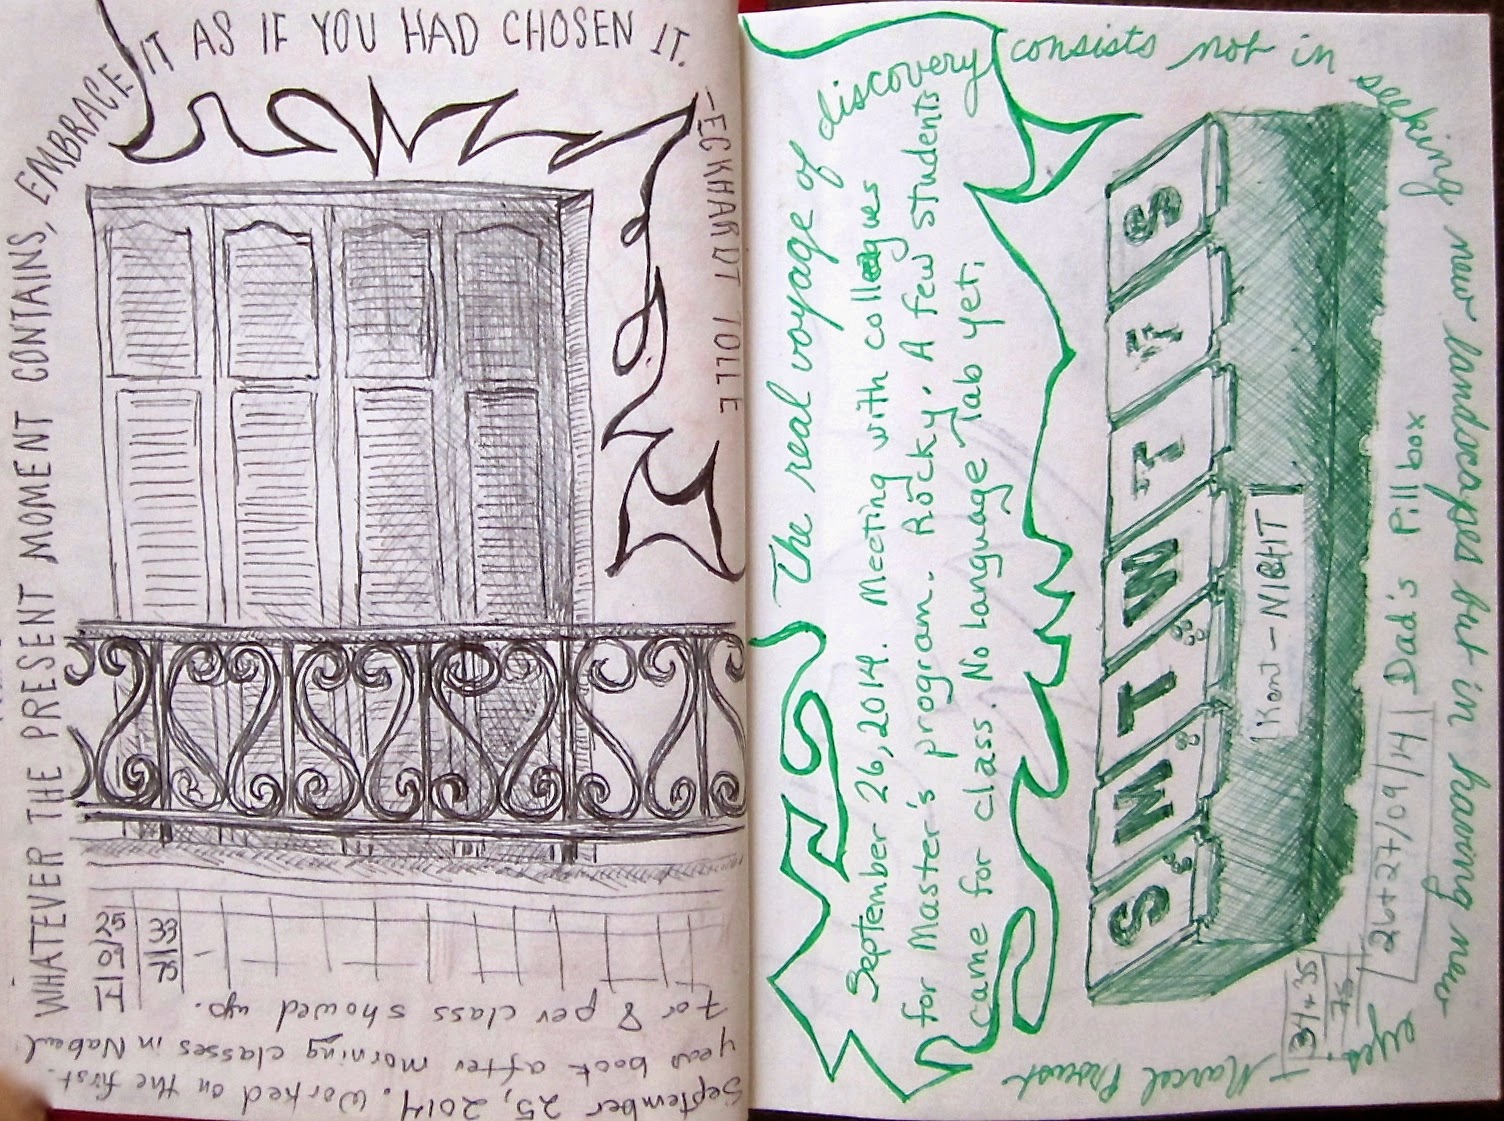 WHATEVER THE PRESENT MOMENT CONTAINS, EMBRACE IT AS IF YOU HAD CHOSEN IT.
–ECKHARDT TOLLE
25|09|14
33
75
September 25, 2014. Worked on the first.
year book after morning classes in Nabeul
7 or 8 per class showed up.
The real voyage of discovery consists not in seeking new landscapes but in having new eyes.
Marcel Proust
September 26, 2014. Meeting with colleagues
for Master's program. Rocky. A few students
came for class. No language lab yet.
S M T W T F S
Kent-NIGHT
26+27/09/14 Dad's Pill box
34+35
75